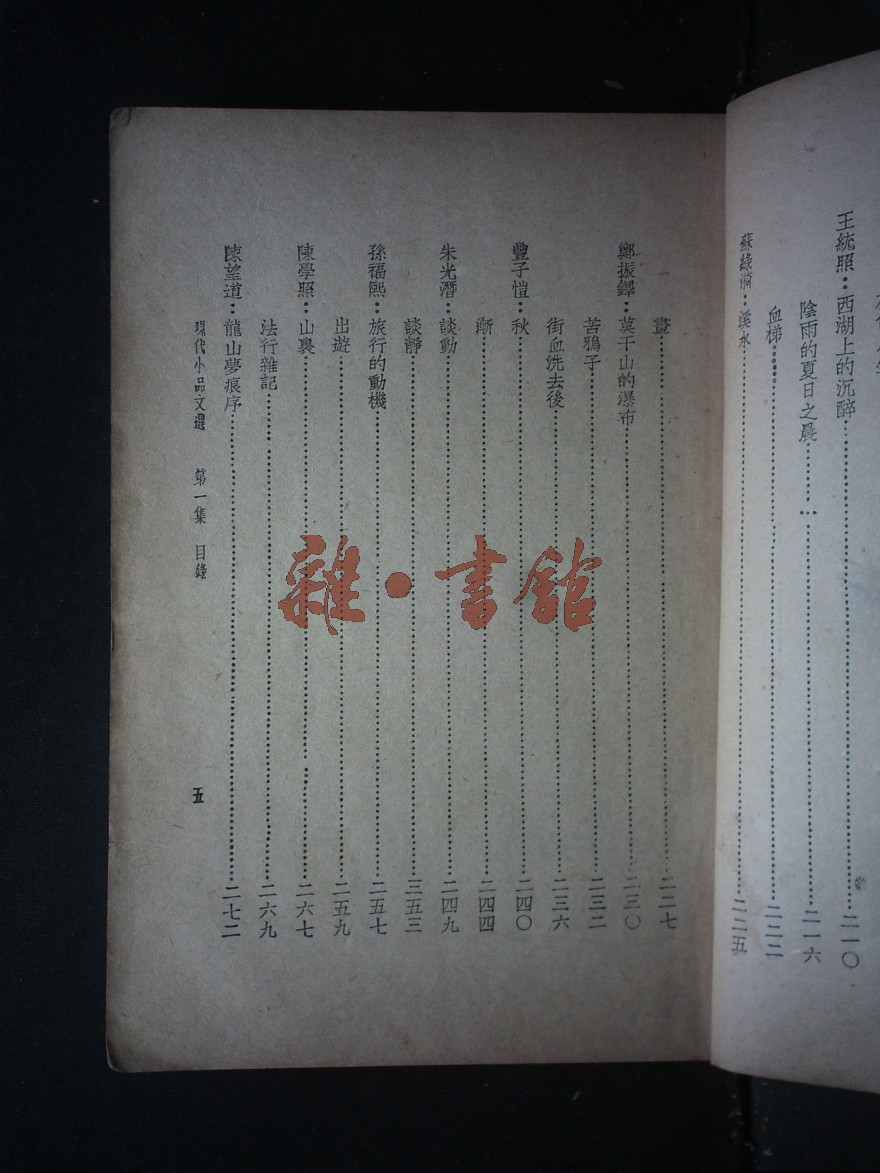 王統照：西湖上的沉醉……二一〇
陰雨的夏日之晨……二一六
血梯……二二二
蘇綠漪：溪水……二二五
畫……二二七
鄭振鐸：莫干山的瀑布……二三〇
苦鴉子……二三二
街血洗去後……二三六
豐子愷：秋……二四〇
漸……二四四
朱光潛：談動……二四九
談靜……三五三
孫福熙：旅行的動機……二五七
出遊……二五九
陳學照：山裏……二六七
法行雜記……二六九
陳望道：龍山夢痕序……二七二
現代小品文選 第一集 目錄 五
雜·書館